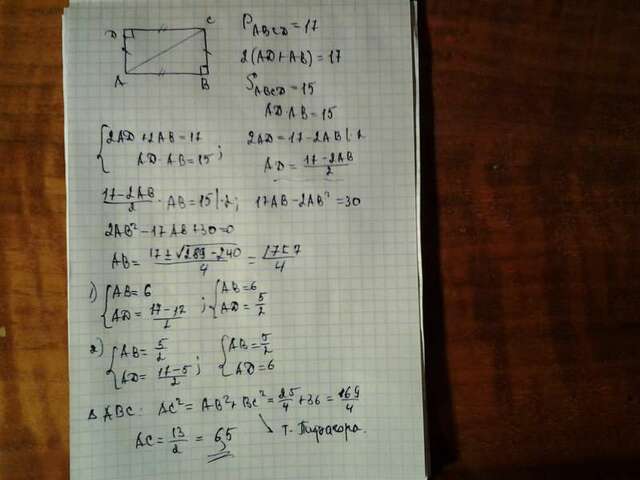 D C
A B
P_ABCD = 17
2(AD + AB) = 17
S_ABCD = 15
AD · AB = 15
{ 2AD + 2AB = 17
AD · AB = 15 ;
2AD = 17 - 2AB | · 2
AD = (17 - 2AB)/2
(17 - 2AB)/2 · AB = 15 | · 2 ; 17AB - 2AB² = 30
2AB² - 17AB + 30 = 0
AB = (17 ± √(289 - 240))/4 = (17 ± 7)/4
1) { AB = 6 ; { AB = 6
AD = (17 - 12)/2 AD = 5/2
2) { AB = 5/2 ; { AB = 5/2
AD = (17 - 5)/2 AD = 6
△ ABC: AC² = AB² + BC² = 25/4 + 36 = 169/4
AC = 13/2 = 6,5 т. Пифагора.